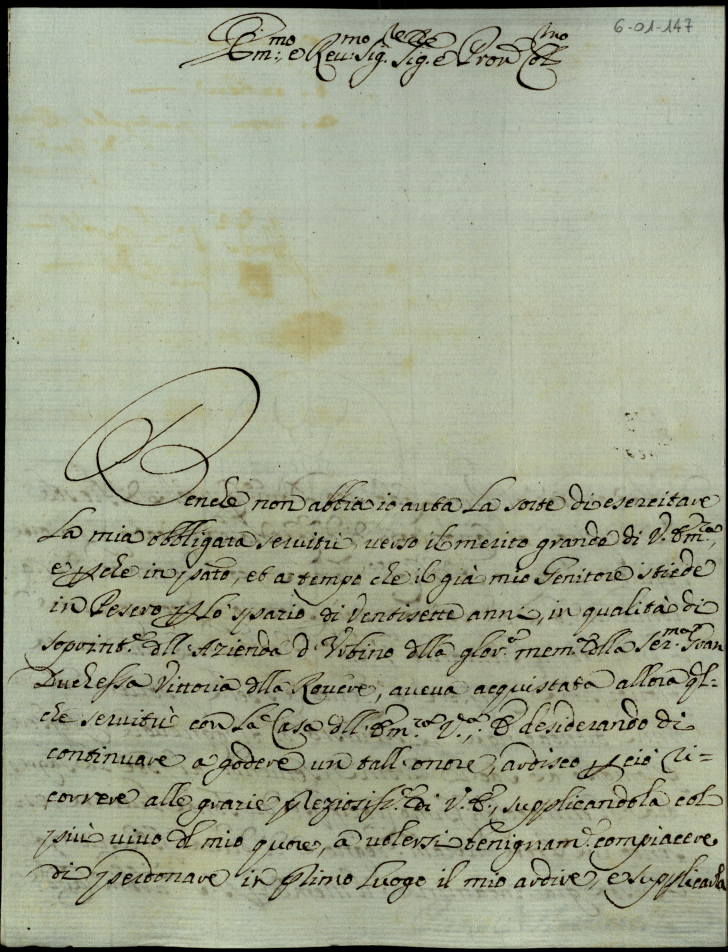 6-01-147
Em:mo, e Reu:mo Sig.r Sig.e e Pron Col.mo
Benche non abbia io auta La sorte di esercitare
La mia obbligata seruitù verso il merito grande di V. Em:za,
e pche in psato, et a tempo che il già mio Genitore stiede
in Pesero p Lo spazio di Ventisette anni, in qualità di
soprint.e dll'Azienda d'Vrbino dlla glor.a mem.a dlla Ser:ma Gran
Duchessa Vittoria dlla Rouere, aueua acquistata allora ql=
che seruitù con La Casa dll'Em:za V.a; E desiderando di
continuare a godere un tall'onore, ardisco p ciò ri=
correre alle grazie preziosiss.e di V. E., supplicandola col
più viuo dl mio quore, a volersi benignam.e compiacere
di perdonare in primo Luogo il mio ardire, e supplicarla